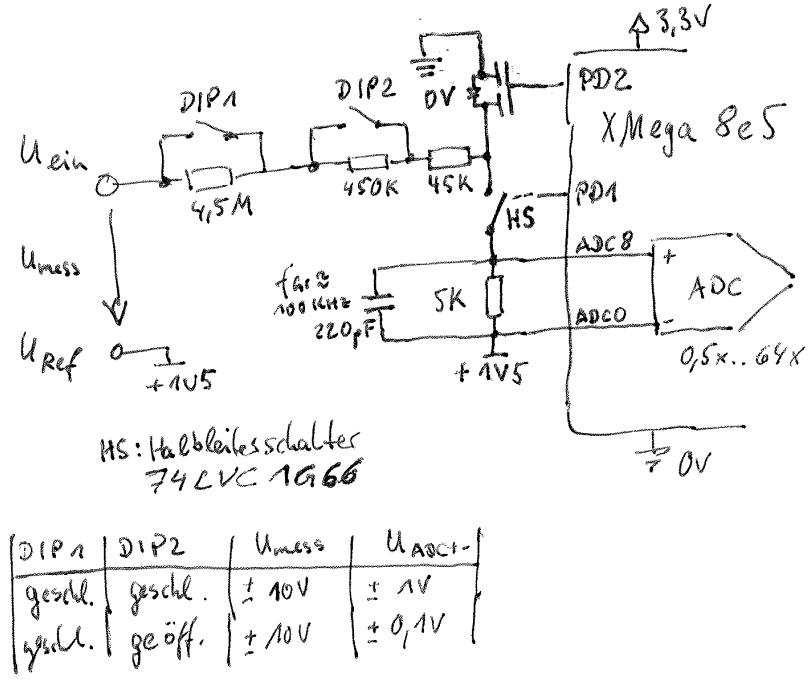 3,3V
DIP1
DIP2
0V
PD2
XMega 8e5
Uein
4,5M
450K
45K
HS
PD1
Umess
ADC8
+
ADC
fGr ≈
100KHz
220pF
5K
ADC0
-
0,5x..64x
URef
+1V5
+1V5
HS: Halbleiterschalter
74LVC1G66
0V
DIP1 DIP2 Umess UADC+-
geschl. geschl. ± 10V ± 1V
geschl. geöff. ± 10V ± 0,1V